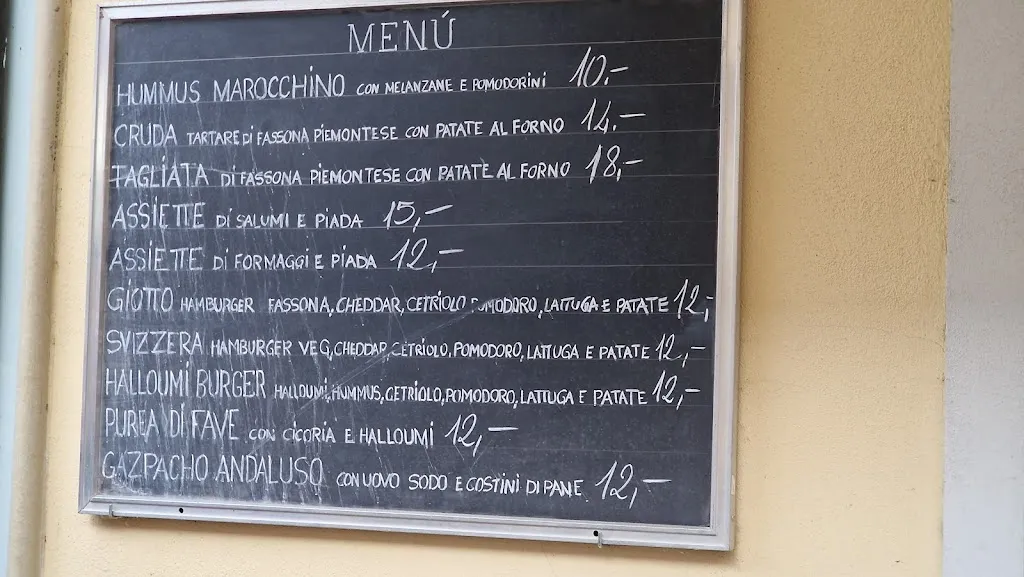 MENÚ
HUMMUS MAROCCHINO CON MELANZANE E POMODORINI 10.-
CRUDA TARTARE DI FASSONA PIEMONTESE CON PATATE AL FORNO 14.-
TAGLIATA DI FASSONA PIEMONTESE CON PATATE AL FORNO 18,-
ASSIETTE DI SALUMI E PIADA 15,-
ASSIETTE DI FORMAGGI E PIADA 12,-
GIOTTO HAMBURGER FASSONA, CHEDDAR, CETRIOLO POMODORO, LATTUGA E PATATE 12,-
SVIZZERA HAMBURGER VEG, CHEDDAR, CETRIOLO, POMODORO, LATTUGA E PATATE 12,-
HALLOUMI BURGER HALLOUMI, HUMMUS, CETRIOLO, POMODORO, LATTUGA E PATATE 12,-
PUREA DI FAVE CON CICORIA E HALLOUMI 12,-
GAZPACHO ANDALUSO CON UOVO SODO E COSTINI DI PANE 12,-